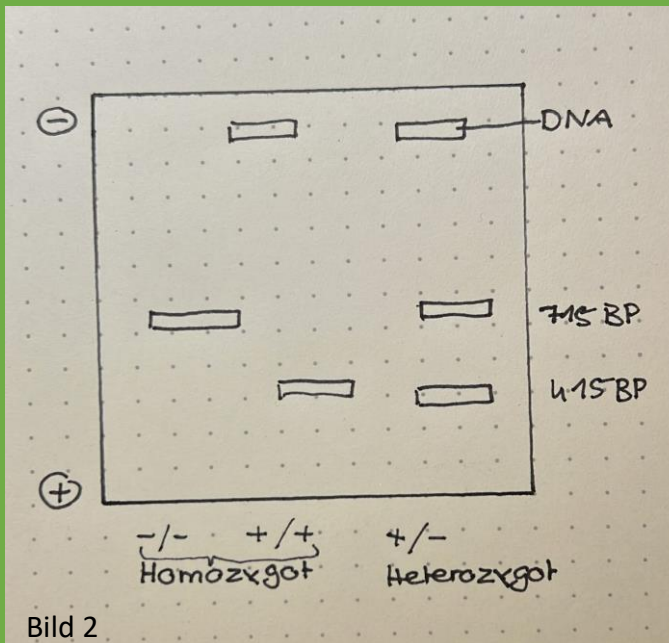 ⊖
DNA
715 BP
415 BP
⊕
-/- +/+ +/-
Homozygot Heterozygot
Bild 2